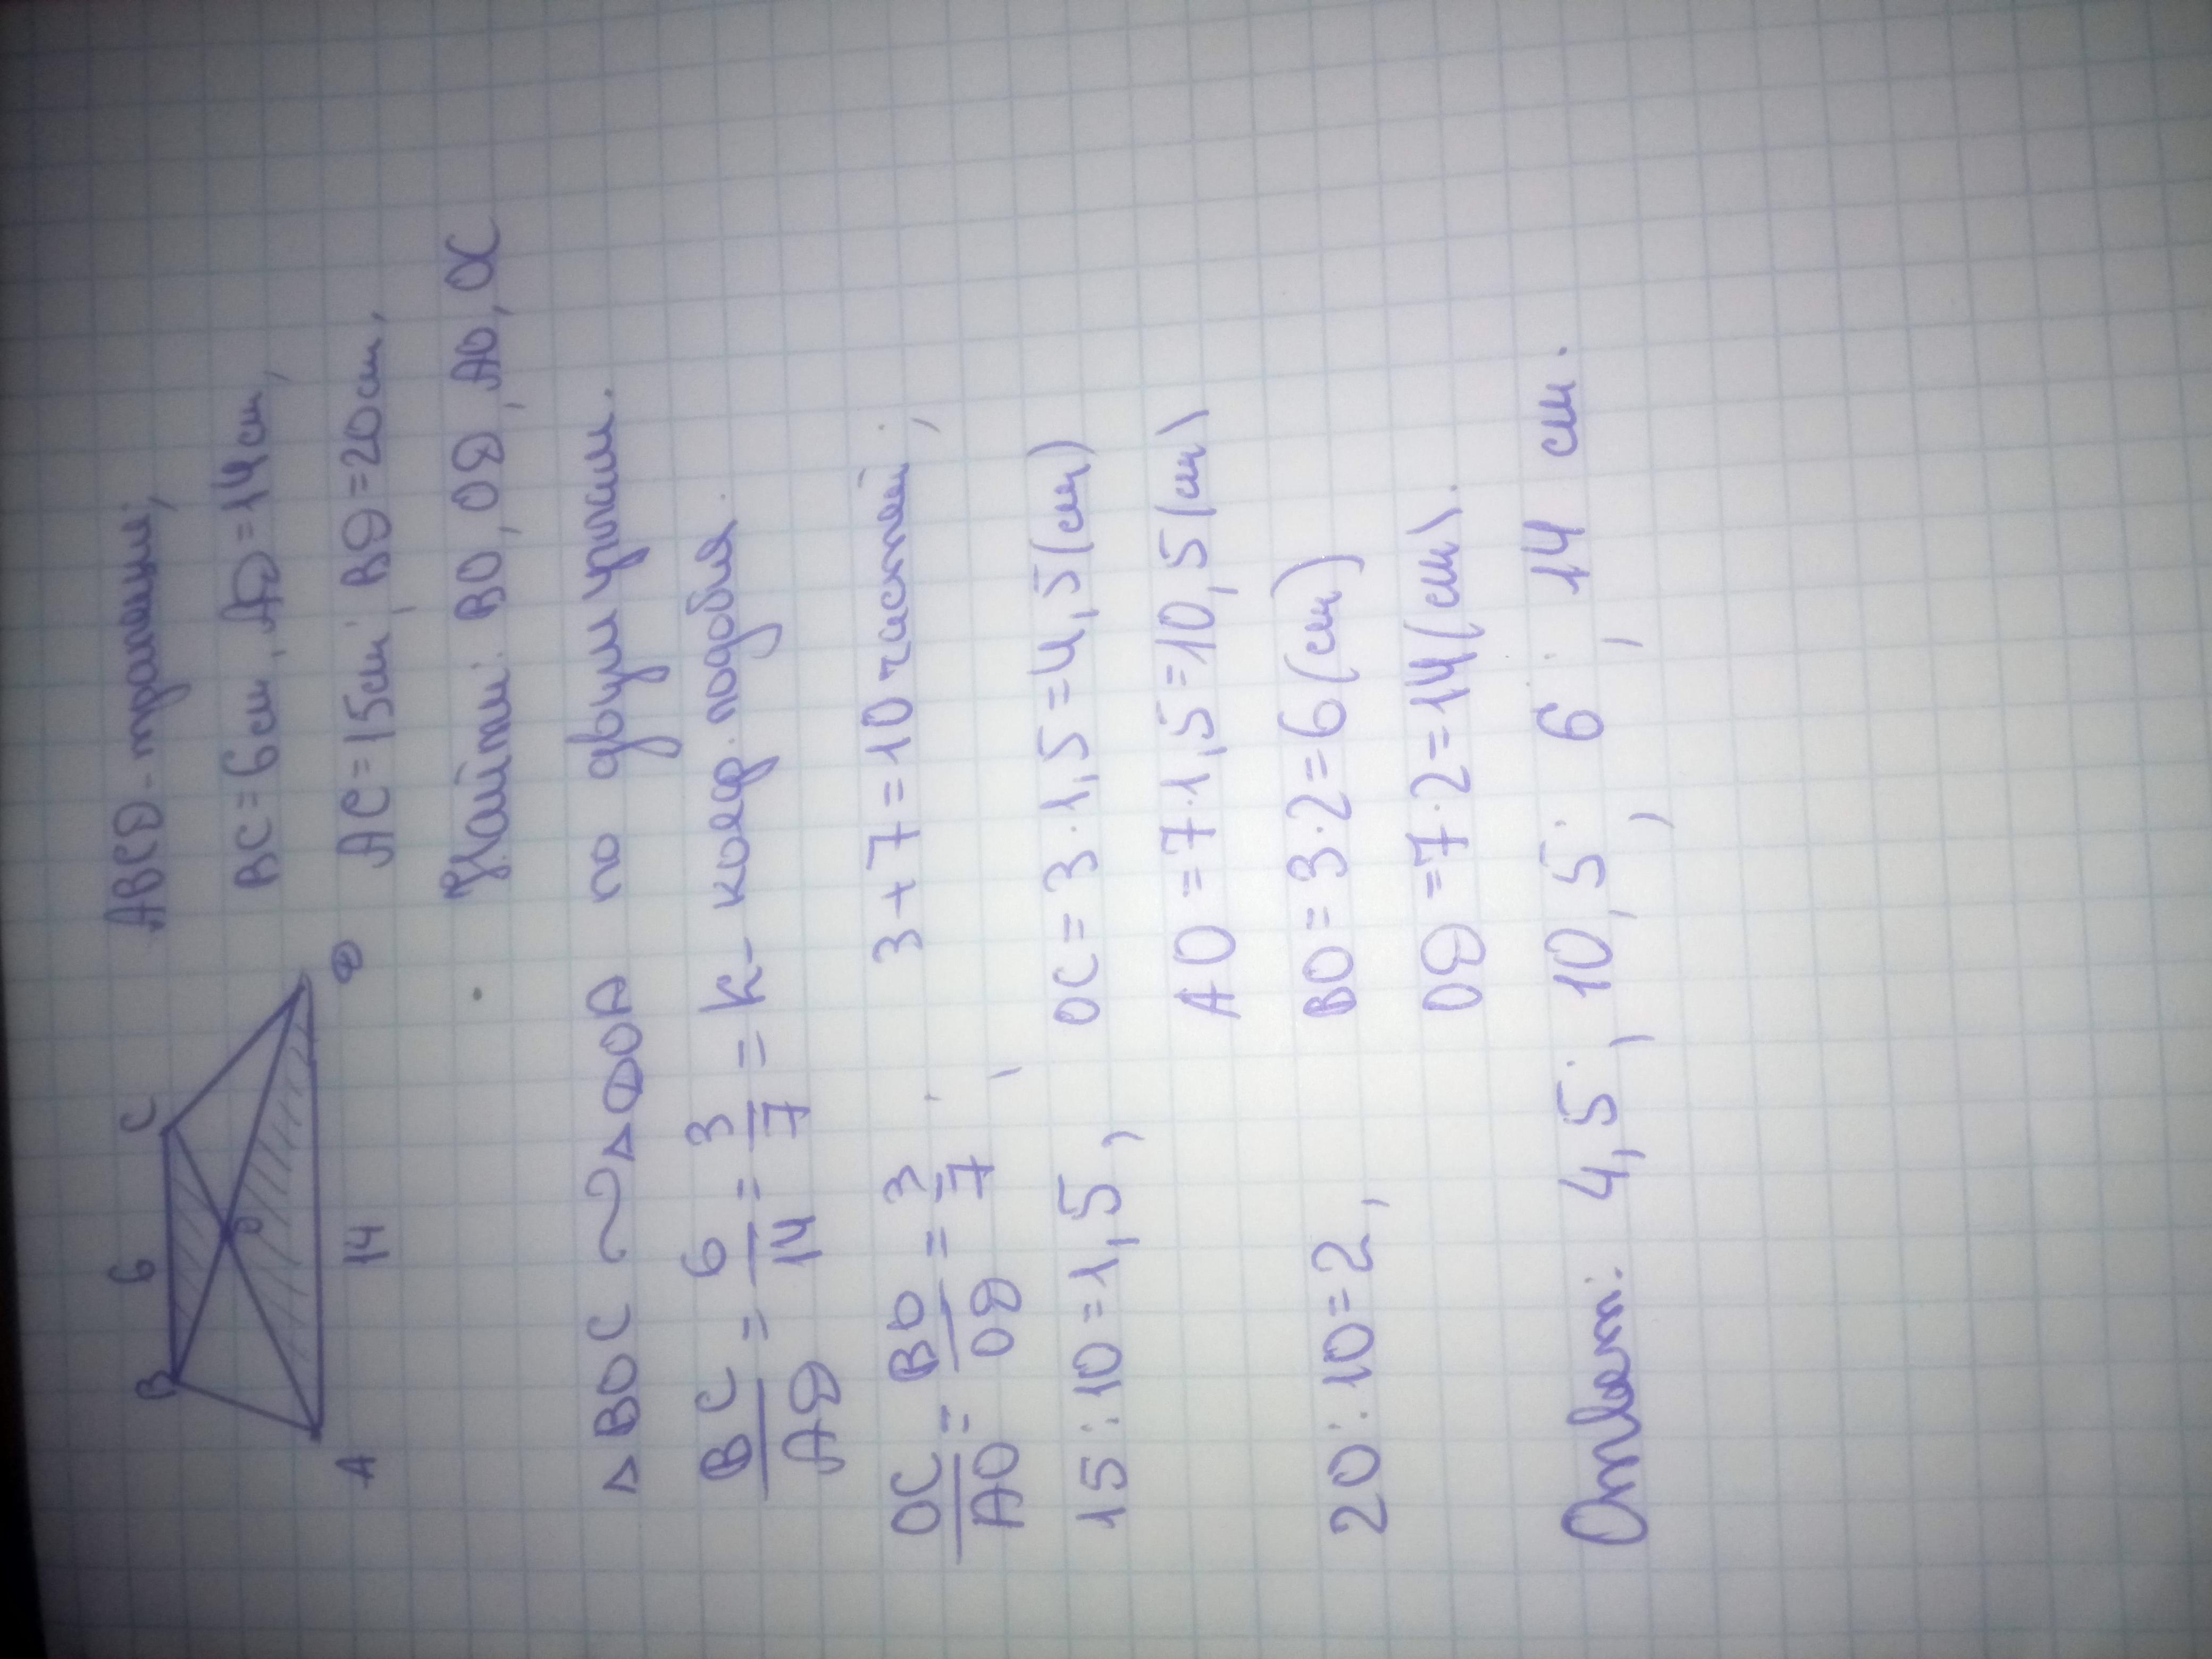 B 6 C
O
A 14 D
ABCD - трапеция,
BC = 6 см, AD = 14 см,
AC = 15 см; BD = 20 см,
Найти: BO, OD, AO, OC
△BOC ∾ △DOA по двум углам.
BC/AD = 6/14 = 3/7 = k - коэф. подобия.
OC/AO = BO/OD = 3/7; 3 + 7 = 10 частей;
15 : 10 = 1,5, OC = 3 · 1,5 = 4,5 (см)
AO = 7 · 1,5 = 10,5 (см)
20 : 10 = 2, BO = 3 · 2 = 6 (см)
OD = 7 · 2 = 14 (см).
Ответ: 4,5; 10,5; 6; 14 см.